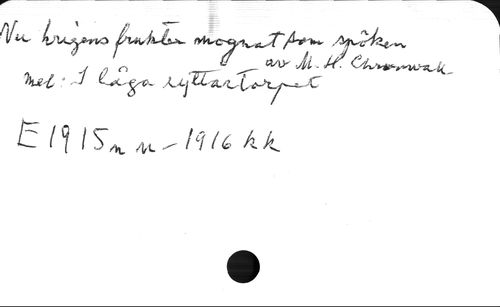 Nu krigens frukter mognat som spöken
av M. H. Chronwall
mel: I låga ryttartorpet
E 1915 n n – 1916 kk